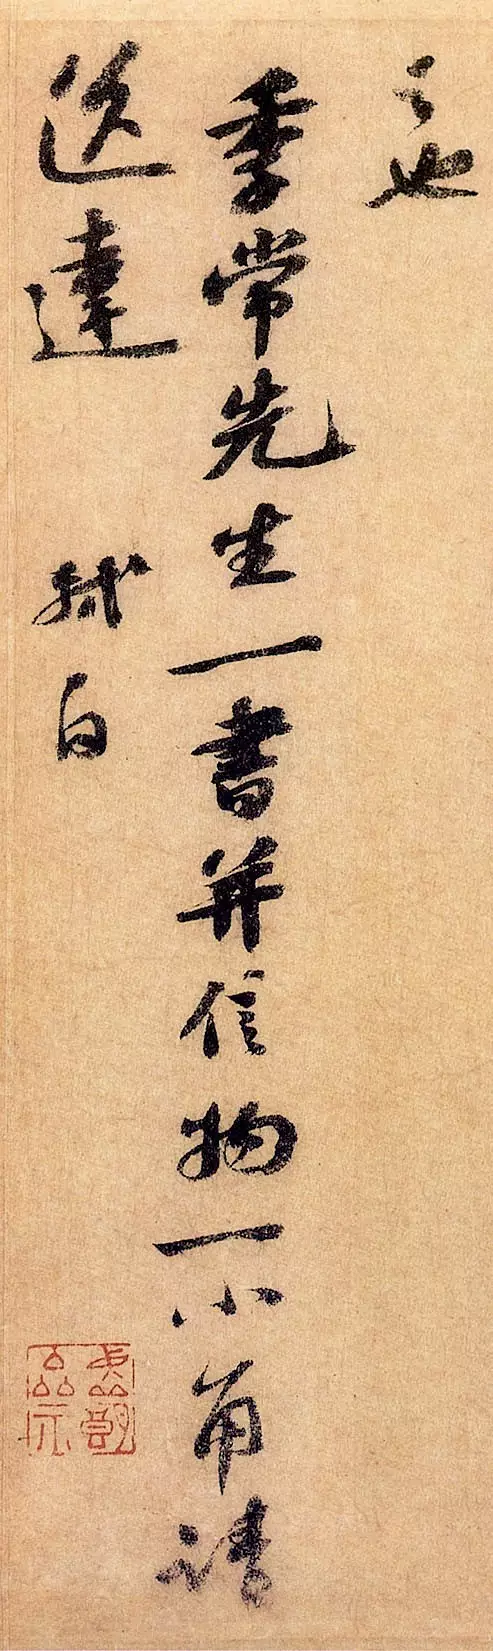 之也
季常先生一書并信物一小角請
送達 軾白